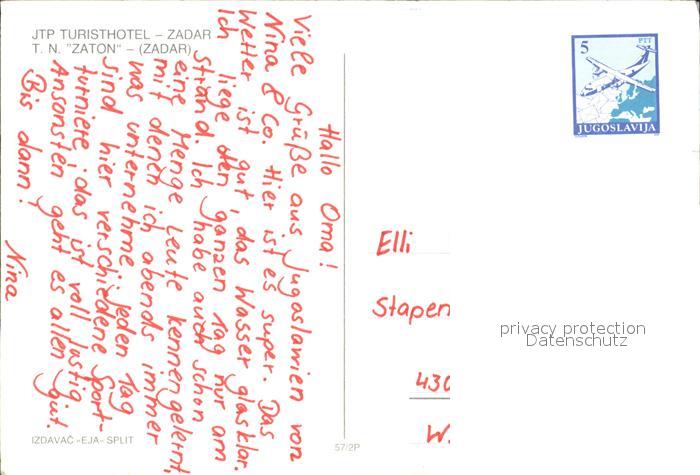 JTP TURISTHOTEL – ZADAR
T. N. "ZATON" – (ZADAR)
Hallo Oma!
Viele Grüße aus Jugoslawien von
Nina & Co. Hier ist es super. Das
Wetter ist gut, das Wasser glasklar.
Ich liege den ganzen Tag nur am
Strand. Ich habe auch schon
eine Menge Leute kennengelernt,
mit denen ich abends immer
was unternehme. Jeden Tag
sind hier verschiedene Sport-
turniere, das ist voll lustig.
Ansonsten geht es allen gut.
Bis dann!
Nina
IZDAVAČ «EJA» SPLIT
57/2P
5 PTT
JUGOSLAVIJA
Elli
Stapen
430
W.
privacy protection
Datenschutz